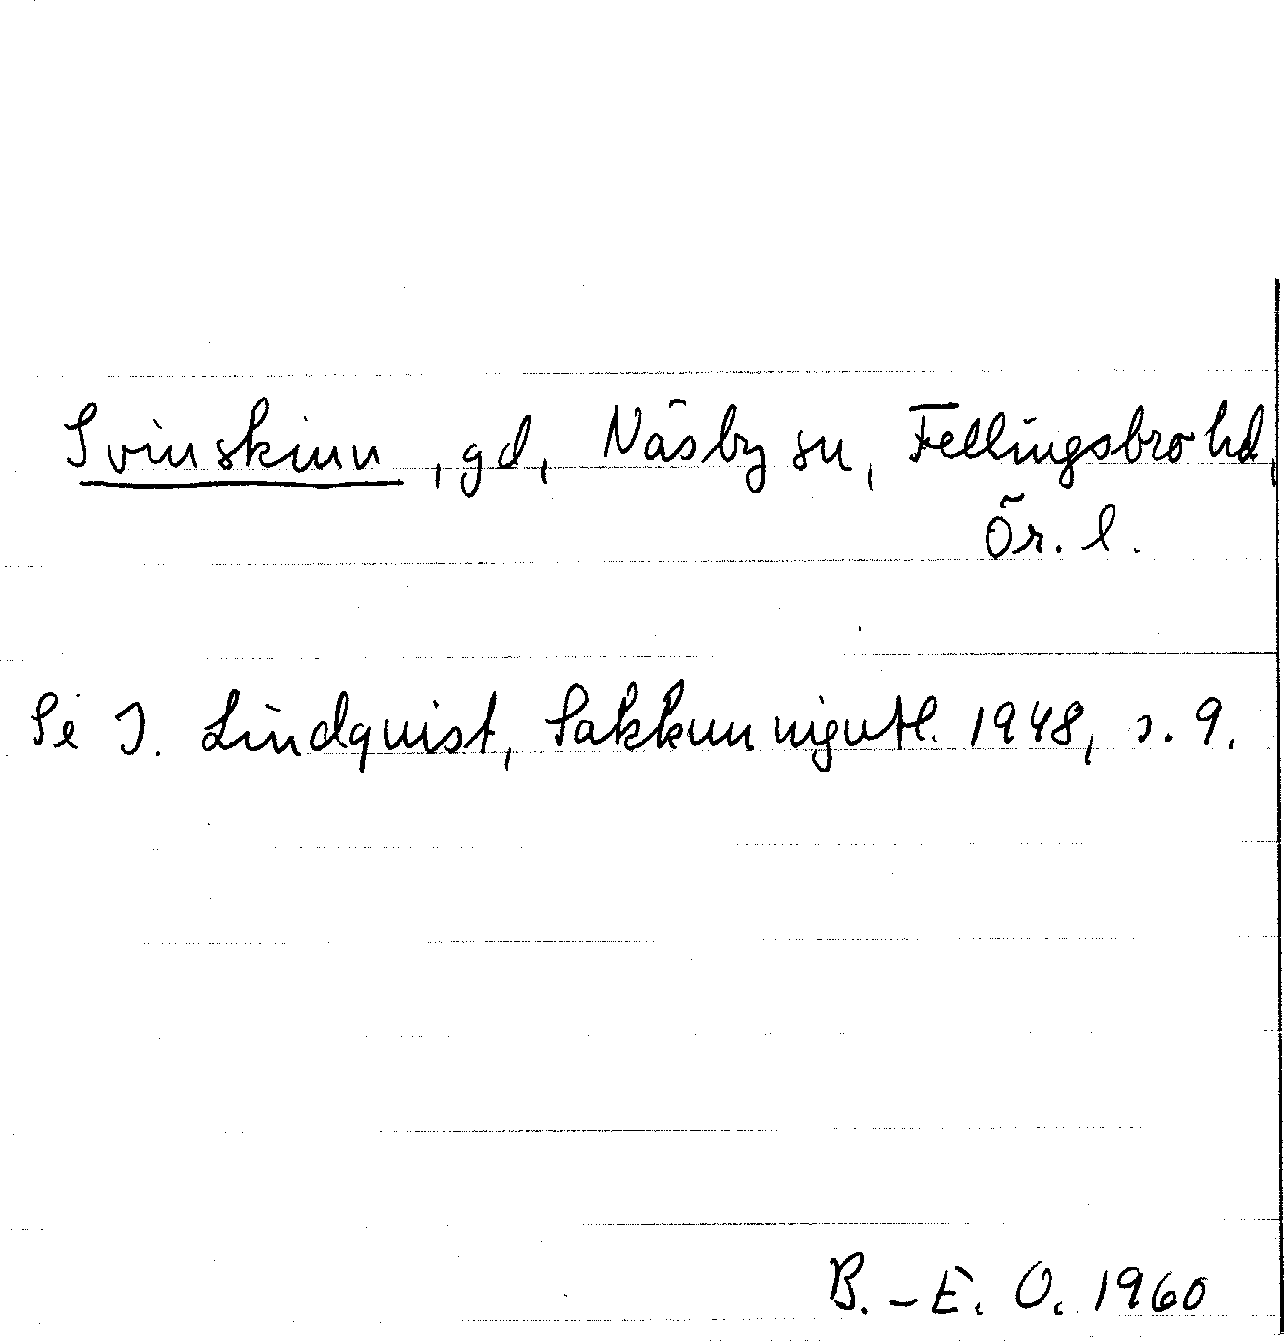 Svinskinn, gd, Näsby sn, Fellingsbro hd,
Ör. l.
Se I. Lindquist, Sakkunnigutl. 1948, s. 9.
B.-E. O. 1960